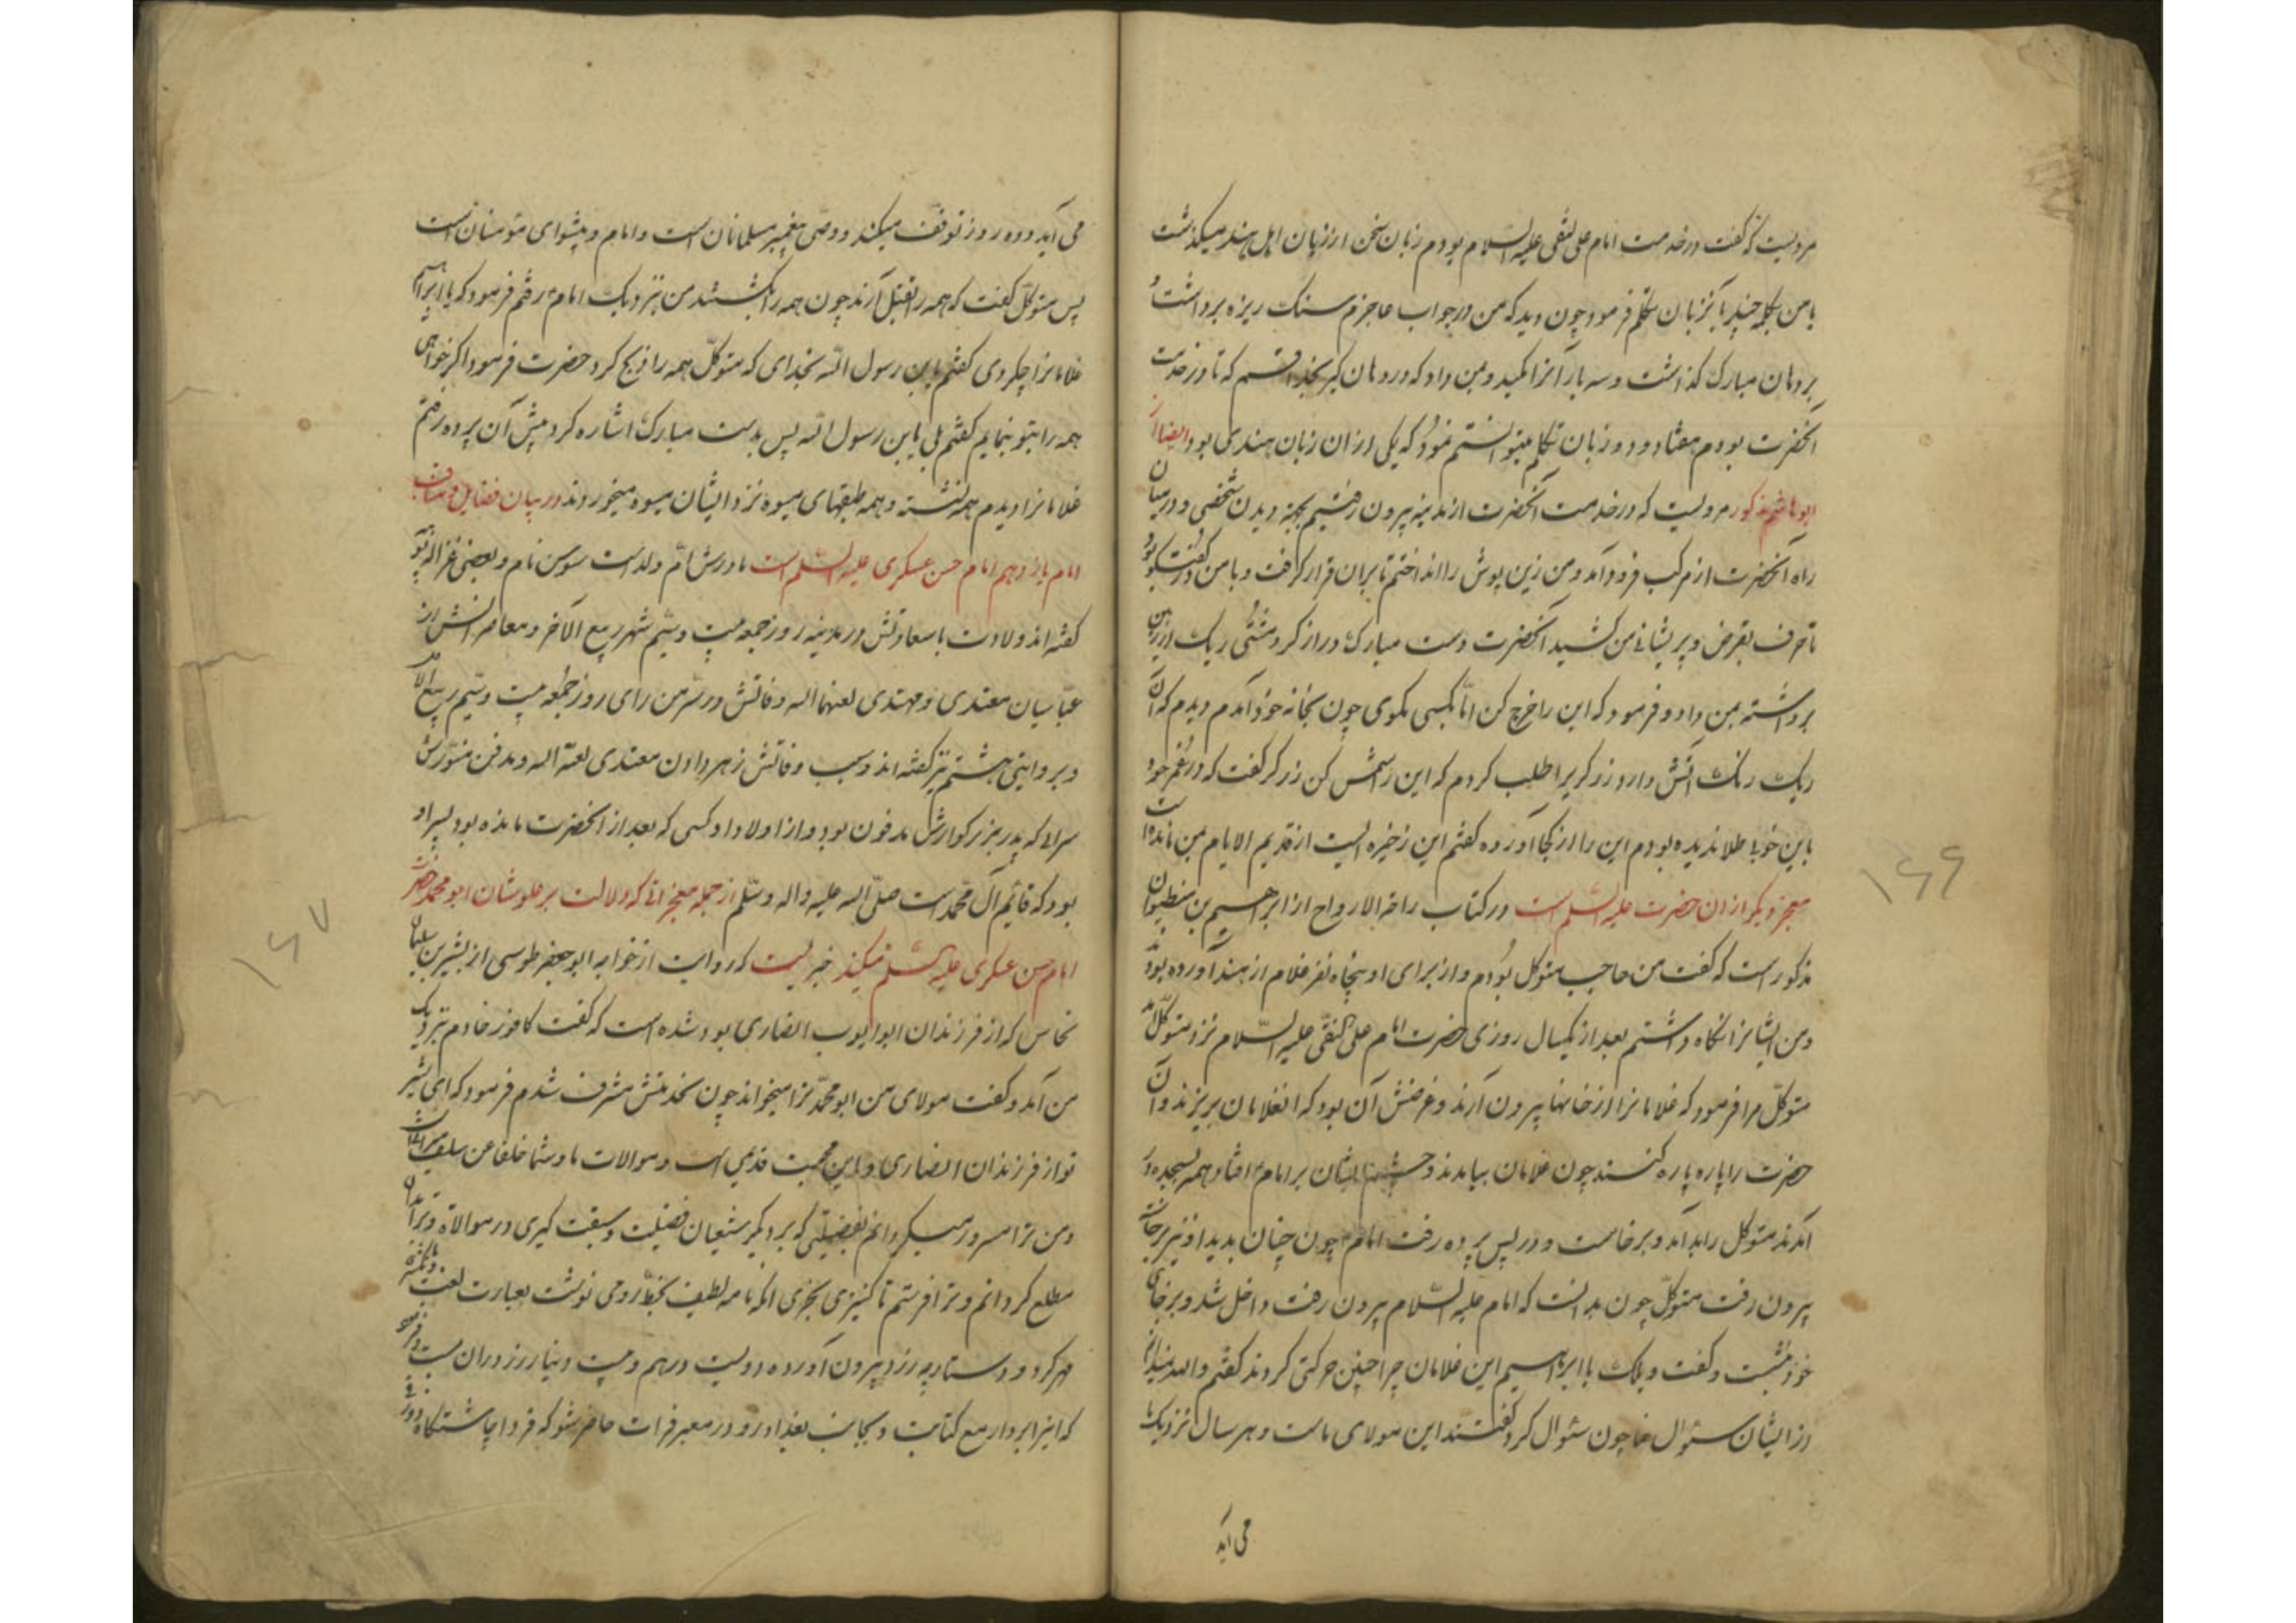 مرویست که گفت در خدمت امام علی النقی علیه السلام بودم زبان سخن از زبان اهل هند میگذشت
با من بکلمه چند بآن زبان تکلم فرمود چون دید که من در جواب عاجزم سنک ریزه برداشت و
بر دهان مبارک گذاشت و سه بار آنرا مکید و بمن داد که در دهان گیر بخدا قسم که تا در خدمت
آنحضرت بودم هفتاد و دو زبان تکلم میتوانستم نمود که یکی از آن زبان هندی بود و ایضا از
ابو هاشم مذکور مرویست که در خدمت آنحضرت از مدینه بیرون رفتیم بجهة دیدن شخصی و در میان
راه آنحضرت از مرکب فرود آمد و من زین پوش را انداختم تا بر آن قرار گرفت و با من در گفتگو بود
تا حرف بقرض و پریشانی من کشید آنحضرت دست مبارک دراز کرد و مشتی ریک از زمین
برداشته بمن داد و فرمود که این را خرج کن اما بکسی مگوی چون بخانه خود آمدم دیدم که آن
ریک رنک آتش دارد زرگریرا طلب کردم که این را شمش کن زرگر گفت که در عمر خود
باین خوبی طلا ندیده بودم این را از کجا آورده گفتم این ذخیره ایست از قدیم الایام بمن مانده است
معجز دیگر از آن حضرت علیه السلم است در کتاب راحة الارواح از ابراهیم بن
مذکور است که گفت من حاجب متوکل بودم و از برای او پنجاه نفر غلام از هند آورده بودند
و من ایشانرا نگاه داشتم بعد از یکسال روزی حضرت امام علی النقی علیه السلام نزد متوکل آمد
متوکل مرا فرمود که غلامانرا از خانها بیرون آرند و غرضش آن بود که آنغلامان بریزند و آن
حضرت را پاره پاره کنند چون غلامان بیامدند و چشم ایشان بر امام افتاد همه بسجده در
آمدند متوکل را بد آمد و برخاست و در پس پرده رفت امام چون چنان بدید او نیز برخاست
بیرون رفت متوکل چون بدانست که امام علیه السلام بیرون رفت داخل شد و بر جای
خود نشست و گفت ویلک یا ابراهیم این غلامان چرا چنین حرکتی کردند گفتم و الله نمیدانم
از ایشان سئوال نما چون سئوال کرد گفتند این مولای ماست و هر سال نزدیک ما
می آید
۱۶۶
می آید و ده روز توقف میکند و وصی پیغمبر مسلمانان است و امام و پیشوای مؤمنان است
پس متوکل گفت که همه را بقتل آرند چون همه را بکشتند من بنزدیک امام رفتم فرمود که یا ابراهیم
غلامانرا چکردی گفتم یا بن رسول الله بخدای که متوکل همه را ذبح کرد حضرت فرمود اگر خواهی
همه را بتو بنمایم گفتم بلی یا بن رسول الله پس بدست مبارک اشاره کرد پیش آن پرده رفتم
غلامانرا دیدم همه نشسته و همه طبقهای میوه نزد ایشان میوه میخوردند در بیان فضایل و مناقب
امام یازدهم امام حسن عسکری علیه السلم است مادرش ام ولد است سوسن نام و بعضی غزاله نیز
گفته اند ولادت با سعادتش در مدینه روز جمعه بیست و سیم شهر ربیع الآخر و معاصرانش از
عباسیان معتدی و مهتدی لعنهما الله وفاتش در سر من رای روز جمعه بیست و سیم ربیع الاول
و بروایتی هشتم نیز گفته اند و سبب وفاتش زهر دادن معتدی لعنه الله و مدفن منورش
سرای که پدر بزرگوارش مدفون بود و از اولاد او کسی که بعد از آنحضرت مانده بود پسر او
بود که قائم آل محمد است صلی الله علیه و اله و سلم از جمله معجزاتی که دلالت بر علو شان ابو محمد حضرت
امام حسن عسکری علیه السلم میکند خبریست که روایت از خواجه ابو جعفر طوسی از بشیر بن سلیمان
نخاس که از فرزندان ابو ایوب انصاری بود شده است که گفت کافور خادم بنزدیک
من آمد و گفت مولای من ابو محمد ترا میخواند چون بخدمتش مشرف شدم فرمود که ای بشیر
تو از فرزندان انصاری و این محبت قدیمی است و موالات ما و شما خلفا عن سلف میراث است
و من ترا مسرور میگردانم بفضیلتی که بر دیگر شیعیان فضیلت و سبقت گیری در موالاة و ترا بدان
مطلع گردانم و ترا فرستم تا کنیزی بخری آنکه نامه لطیف بخط رومی نوشت بعبارت لغت
مهر کرد و دستارچه زرد بیرون آورده دویست درهم و بیست دینار زر در آن بست و فرمود
که اینرا بردار مع کتابت و بجانب بغداد رو و در معبر فرات حاضر شو که فردا چاشتگاه
۱۶۷